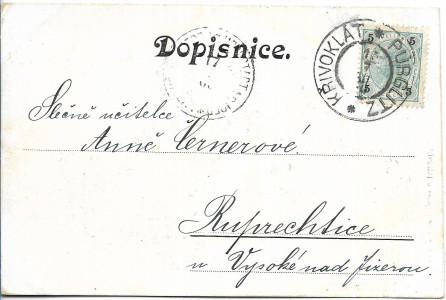 Dopisnice.
KŘIVOKLÁT * PÜRGLITZ *
5 5
5 5
Slečně učitelce
Anně Černerové.
Ruprechtice
u Vysoké nad Jizerou